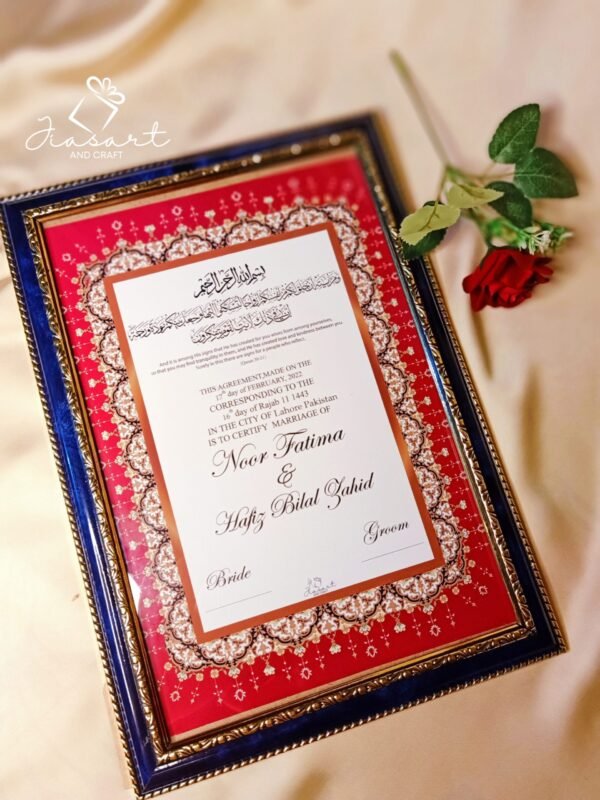 Jiasart
AND CRAFT
بسم الله الرحمن الرحيم
ومن آياته أن خلق لكم من أنفسكم أزواجا لتسكنوا إليها وجعل بينكم مودة ورحمة
إن في ذلك لآيات لقوم يتفكرون
And it is among His signs that He has created for you wives from among yourselves,
so that you may find tranquility in them, and He has created love and kindness between you
Surely in this there are signs for a people who reflect.
(Quran 30-21)
THIS AGREEMENT,MADE ON THE
17th day of FEBRUARY, 2022
CORRESPONDING TO THE
16th day of Rajab 11 1443
IN THE CITY OF Lahore Pakistan
IS TO CERTIFY MARRIAGE OF
Noor Fatima
&
Hafiz Bilal Zahid
Groom
Bride